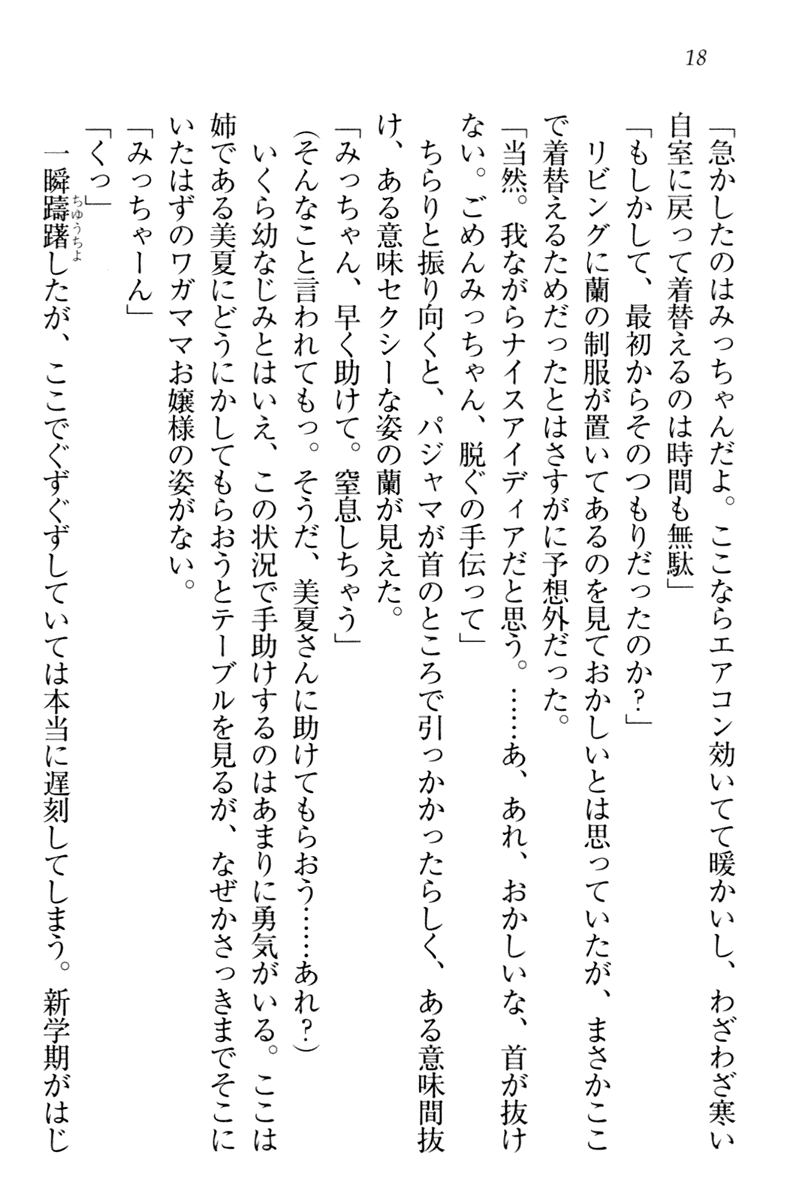 18
「急かしたのはみっちゃんだよ。ここならエアコン効いてて暖かいし、わざわざ寒い
自室に戻って着替えるのは時間も無駄」
「もしかして、最初からそのつもりだったのか？」
　リビングに蘭の制服が置いてあるのを見ておかしいとは思っていたが、まさかここ
で着替えるためだったとはさすがに予想外だった。
「当然。我ながらナイスアイディアだと思う。……あ、あれ、おかしいな、首が抜け
ない。ごめんみっちゃん、脱ぐの手伝って」
　ちらりと振り向くと、パジャマが首のところで引っかかったらしく、ある意味間抜
け、ある意味セクシーな姿の蘭が見えた。
「みっちゃん、早く助けて。窒息しちゃう」
（そんなこと言われてもっ。そうだ、美夏さんに助けてもらおう……あれ？）
　いくら幼なじみとはいえ、この状況で手助けするのはあまりに勇気がいる。ここは
姉である美夏にどうにかしてもらおうとテーブルを見るが、なぜかさっきまでそこに
いたはずのワガママお嬢様の姿がない。
「みっちゃーん」
「くっ」
　一瞬躊躇したが、ここでぐずぐずしていては本当に遅刻してしまう。新学期がはじ
ちゆうちよ